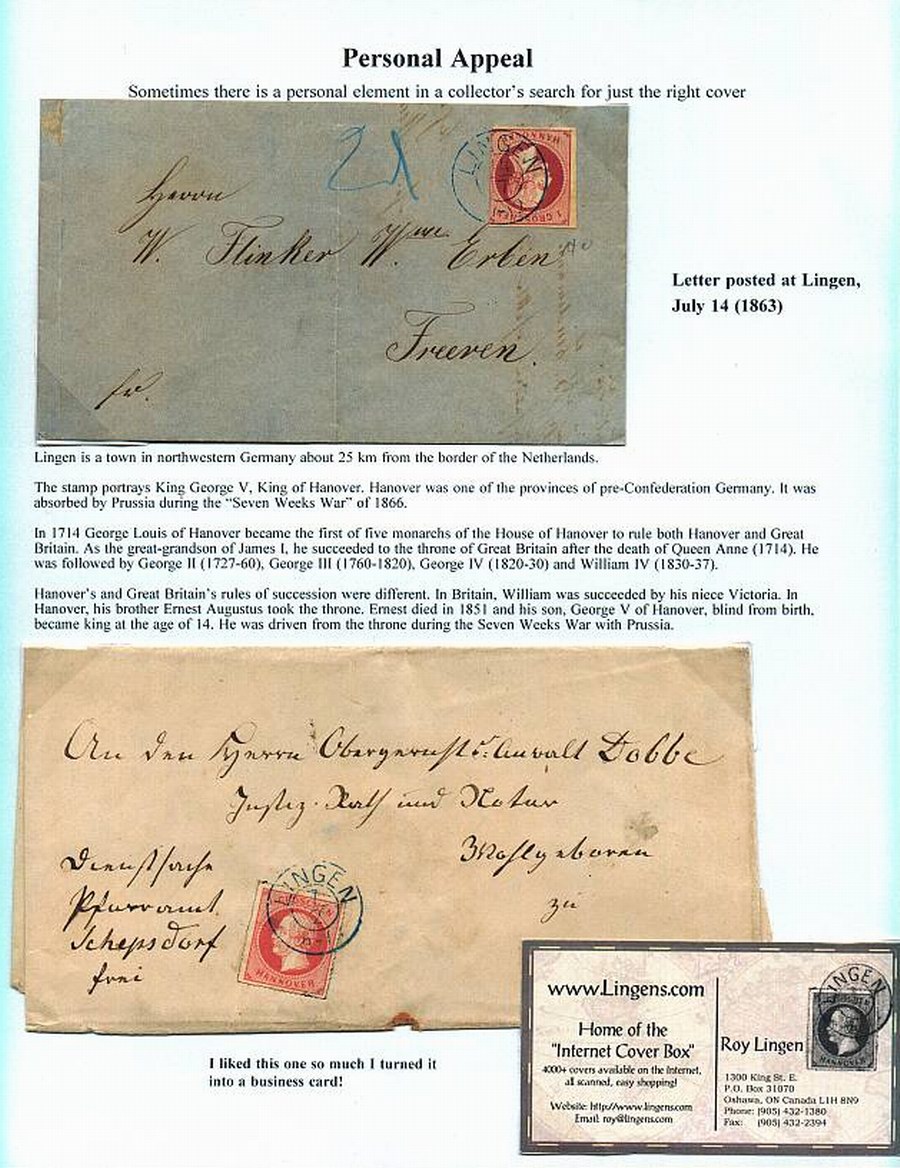 Personal Appeal
Sometimes there is a personal element in a collector's search for just the right cover
2
LINGEN
HANNOVER
1 GROSCHEN
Herrn
W. Flinker Wwe. Erben
Freeren.
fr.
Letter posted at Lingen,
July 14 (1863)
Lingen is a town in northwestern Germany about 25 km from the border of the Netherlands.
The stamp portrays King George V, King of Hanover. Hanover was one of the provinces of pre-Confederation Germany. It was
absorbed by Prussia during the “Seven Weeks War” of 1866.
In 1714 George Louis of Hanover became the first of five monarchs of the House of Hanover to rule both Hanover and Great
Britain. As the great-grandson of James I, he succeeded to the throne of Great Britain after the death of Queen Anne (1714). He
was followed by George II (1727-60), George III (1760-1820), George IV (1820-30) and William IV (1830-37).
Hanover's and Great Britain's rules of succession were different. In Britain, William was succeeded by his niece Victoria. In
Hanover, his brother Ernest Augustus took the throne. Ernest died in 1851 and his son, George V of Hanover, blind from birth,
became king at the age of 14. He was driven from the throne during the Seven Weeks War with Prussia.
An den Herrn Obergerichts-Anwalt Dobbe
Justiz-Rath und Notar
Wohlgeboren
zu
Dienstsache
Pfarramt
Schepsdorf
frei
LINGEN
HANNOVER
www.Lingens.com
Home of the
"Internet Cover Box"
4000+ covers available on the Internet,
all scanned, easy shopping!
Website: http://www.lingens.com
Email: roy@lingens.com
LINGEN
HANNOVER
Roy Lingen
1300 King St. E.
P.O. Box 31070
Oshawa, ON Canada L1H 8N9
Phone: (905) 432-1380
Fax: (905) 432-2394
I liked this one so much I turned it
into a business card!